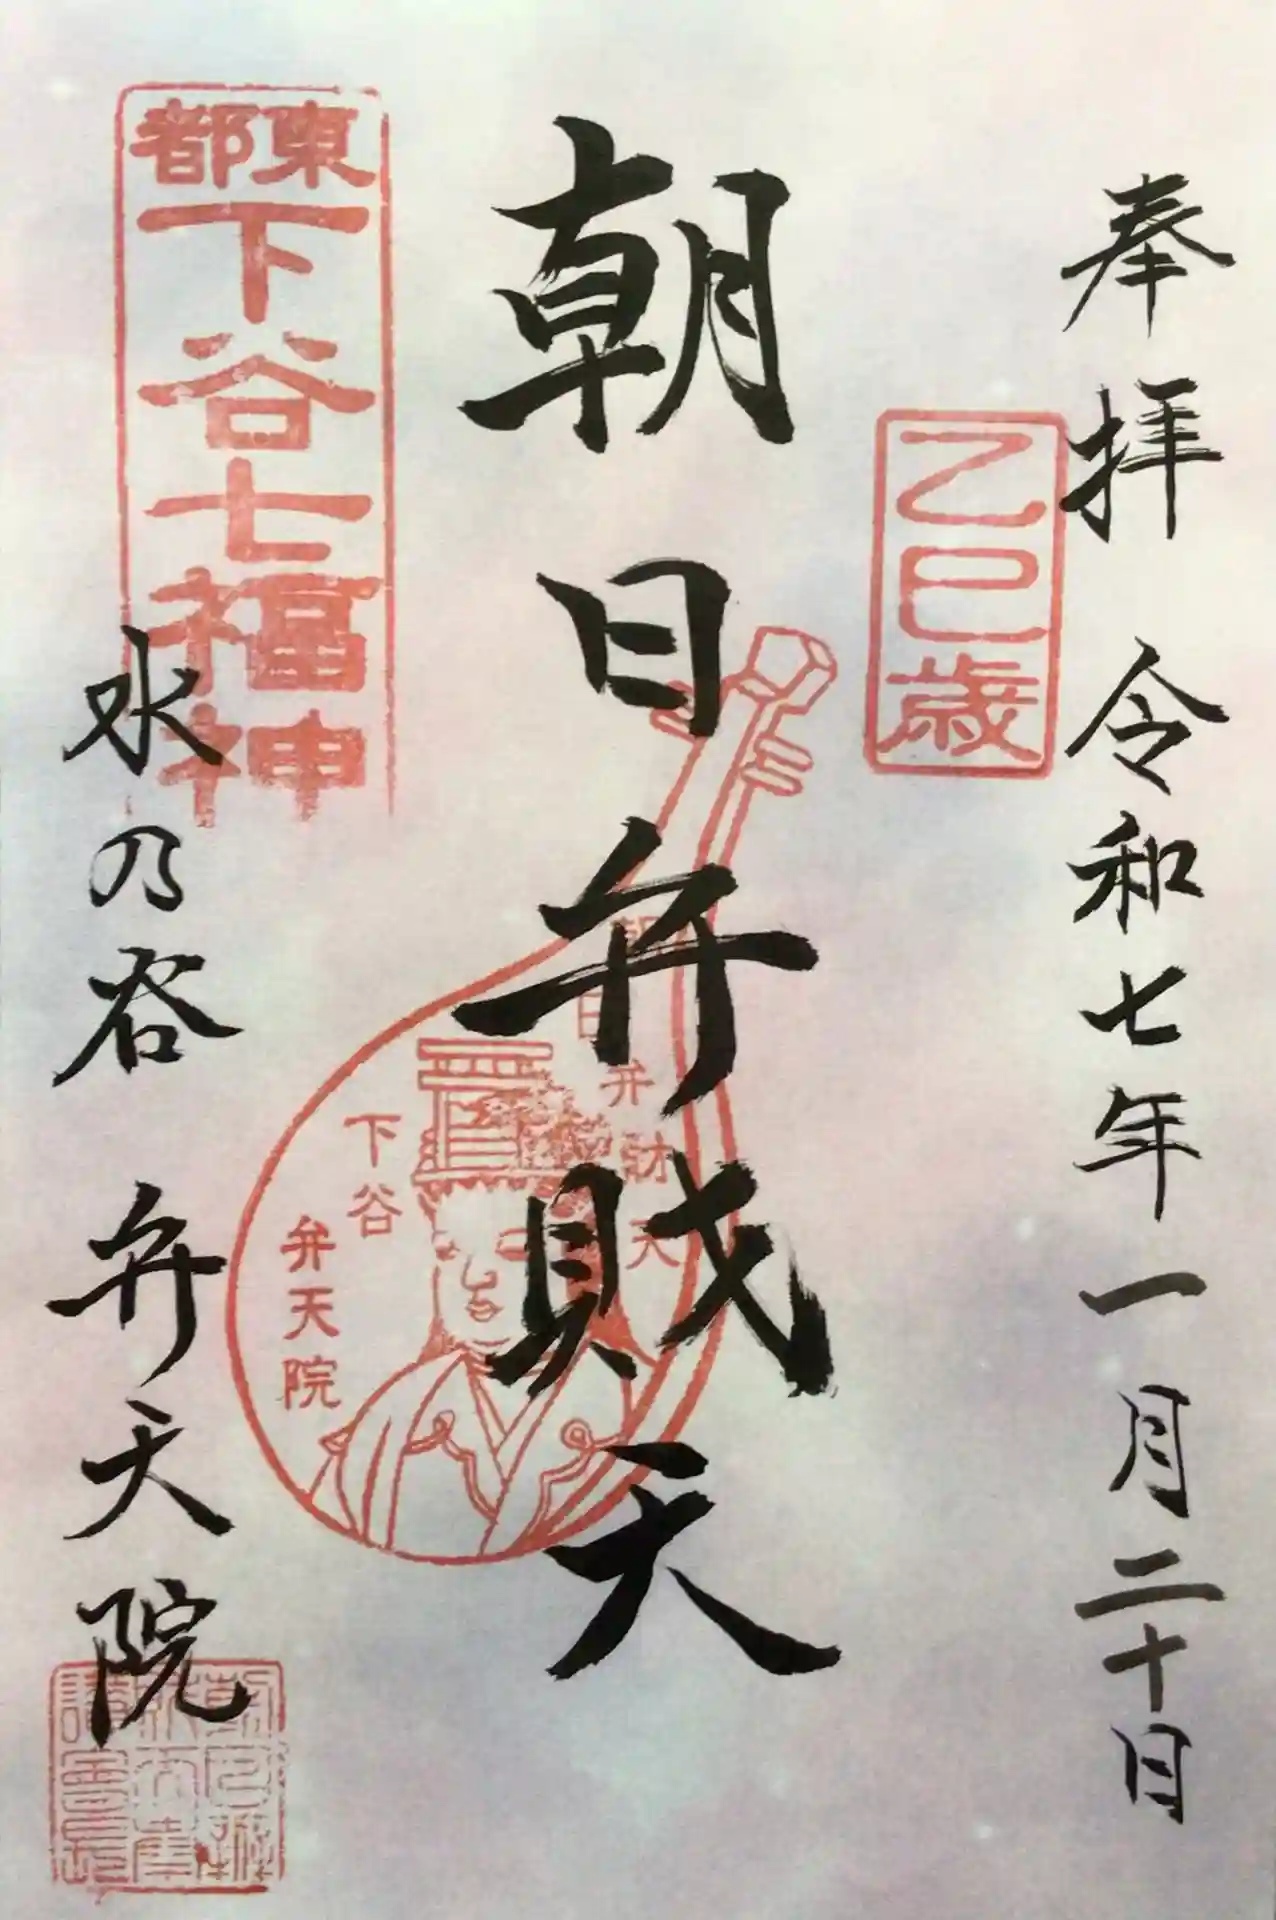 奉拝 令和七年一月二十日
乙巳歳
朝日弁財天
朝日弁財天
下谷
弁天院
東都
下谷七福神
水の谷 弁天院